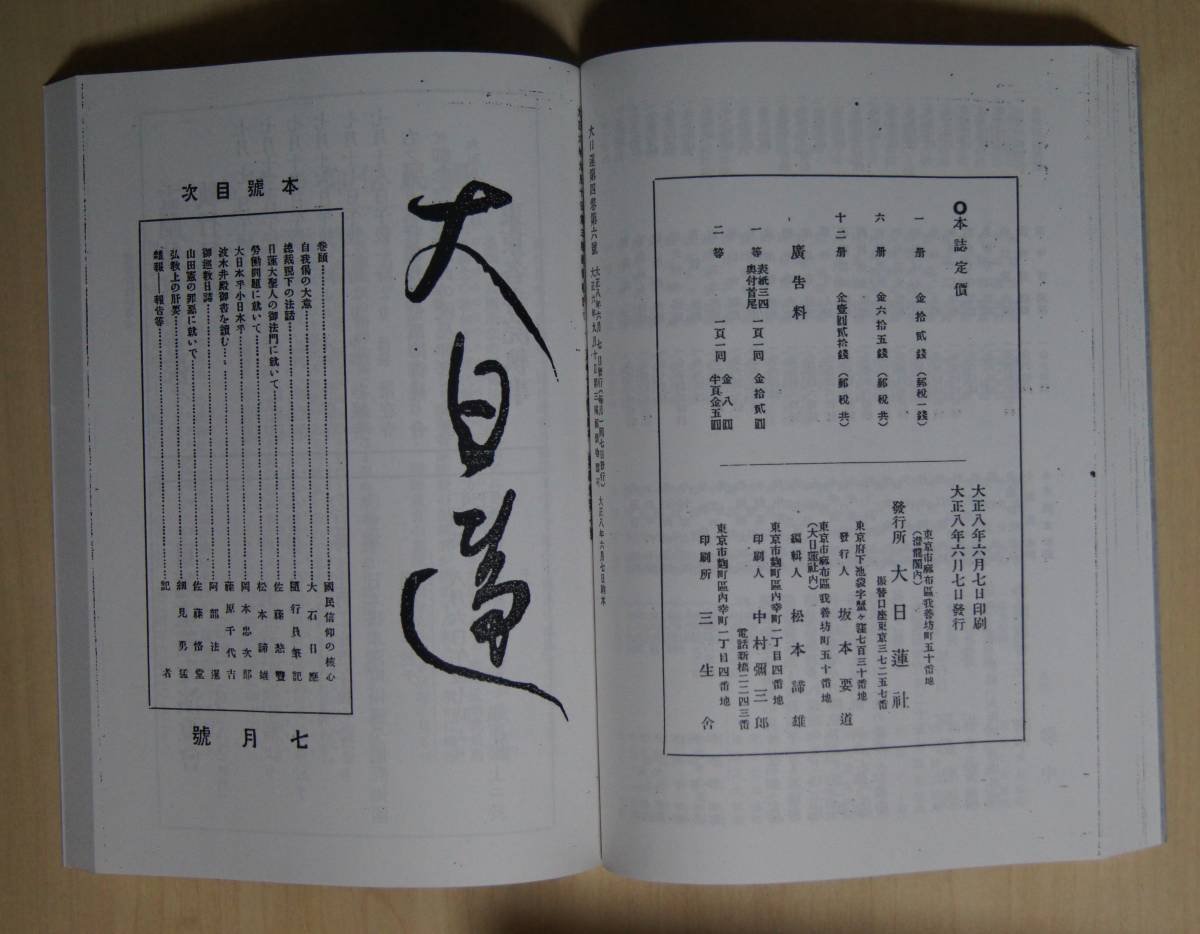 ○本誌定價
一册 金拾貳錢(郵税一錢)
六册 金六拾五錢(郵税共)
十二册 金壹圓貳拾錢(郵税共)
廣告料
一等 表紙三四 奥付首尾 一頁一回 金拾貳圓
二等 一頁一回 金八圓 半頁金五圓
大正八年六月七日印刷
大正八年六月七日發行
東京市麻布區我善坊町五十番地
(潜龍閣内)
發行所 大日蓮社
振替口座東京三七二五七番
東京府下池袋字蟹ヶ窪七百三十番地
發行人 坂本要道
東京市麻布區我善坊町五十番地
(大日蓮社内)
編輯人 松本諦雄
東京市麹町區内幸町一丁目四番地
印刷人 中村彌三郎
電話新橋二二四三番
東京市麹町區内幸町一丁目四番地
印刷所 三生舍
大日蓮第四卷第六號
大正八年六月七日發行(毎月一回七日發行)
大正八年六月七日納本
大日蓮
本號目次
卷頭 國民信仰の核心
自我偈の大意 大石日應
總裁猊下の法話 隨行員筆記
日蓮大聖人の御法門に就いて 佐藤慈豐
勞働問題に就いて 松本諦雄
大日本乎小日本乎 岡本忠次郎
波木井殿御書を讀む 藤原千代吉
御巡敎日誌 阿部法運
山田憲の罪惡に就いて 佐藤悟堂
弘敎上の肝要 細見勇猛
雜報──報告等 記者
七月號